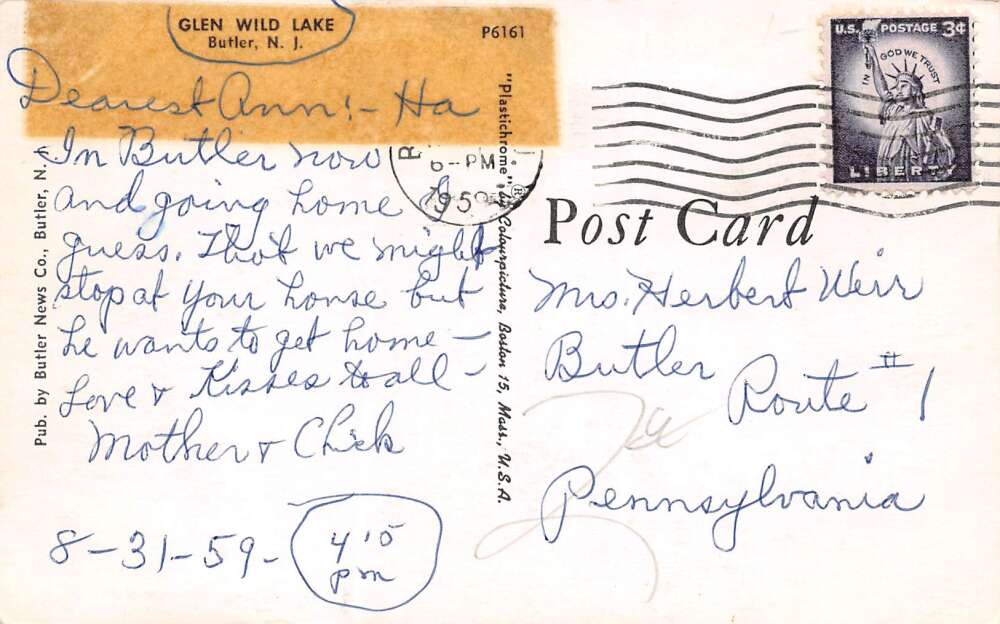 GLEN WILD LAKE
Butler, N. J.
P6161
Dearest Ann! - Ha
In Butler now
and going home I
guess. Thot we might
stop at your house but
he wants to get home —
Love & Kisses to all —
Mother & Chick
8-31-59-
4 15
pm
Pub. by Butler News Co., Butler, N. J.
"Plastichrome"® by Colourpicture, Boston 15, Mass., U.S.A.
6-PM
1959
U.S. POSTAGE 3¢
IN GOD WE TRUST
LIBERTY
Post Card
Mrs. Herbert Weir
Butler
Route #1
Pennsylvania